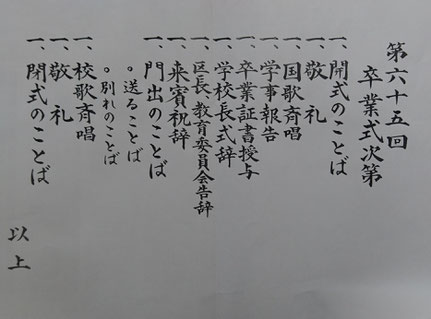 第六十五回
卒業式次第
一、開式のことば
一、敬礼
一、国歌斉唱
一、学事報告
一、卒業証書授与
一、学校長式辞
一、区長、教育委員会告辞
一、来賓祝辞
一、門出のことば
。送ることば
。別れのことば
一、校歌斉唱
一、敬礼
一、閉式のことば
以上